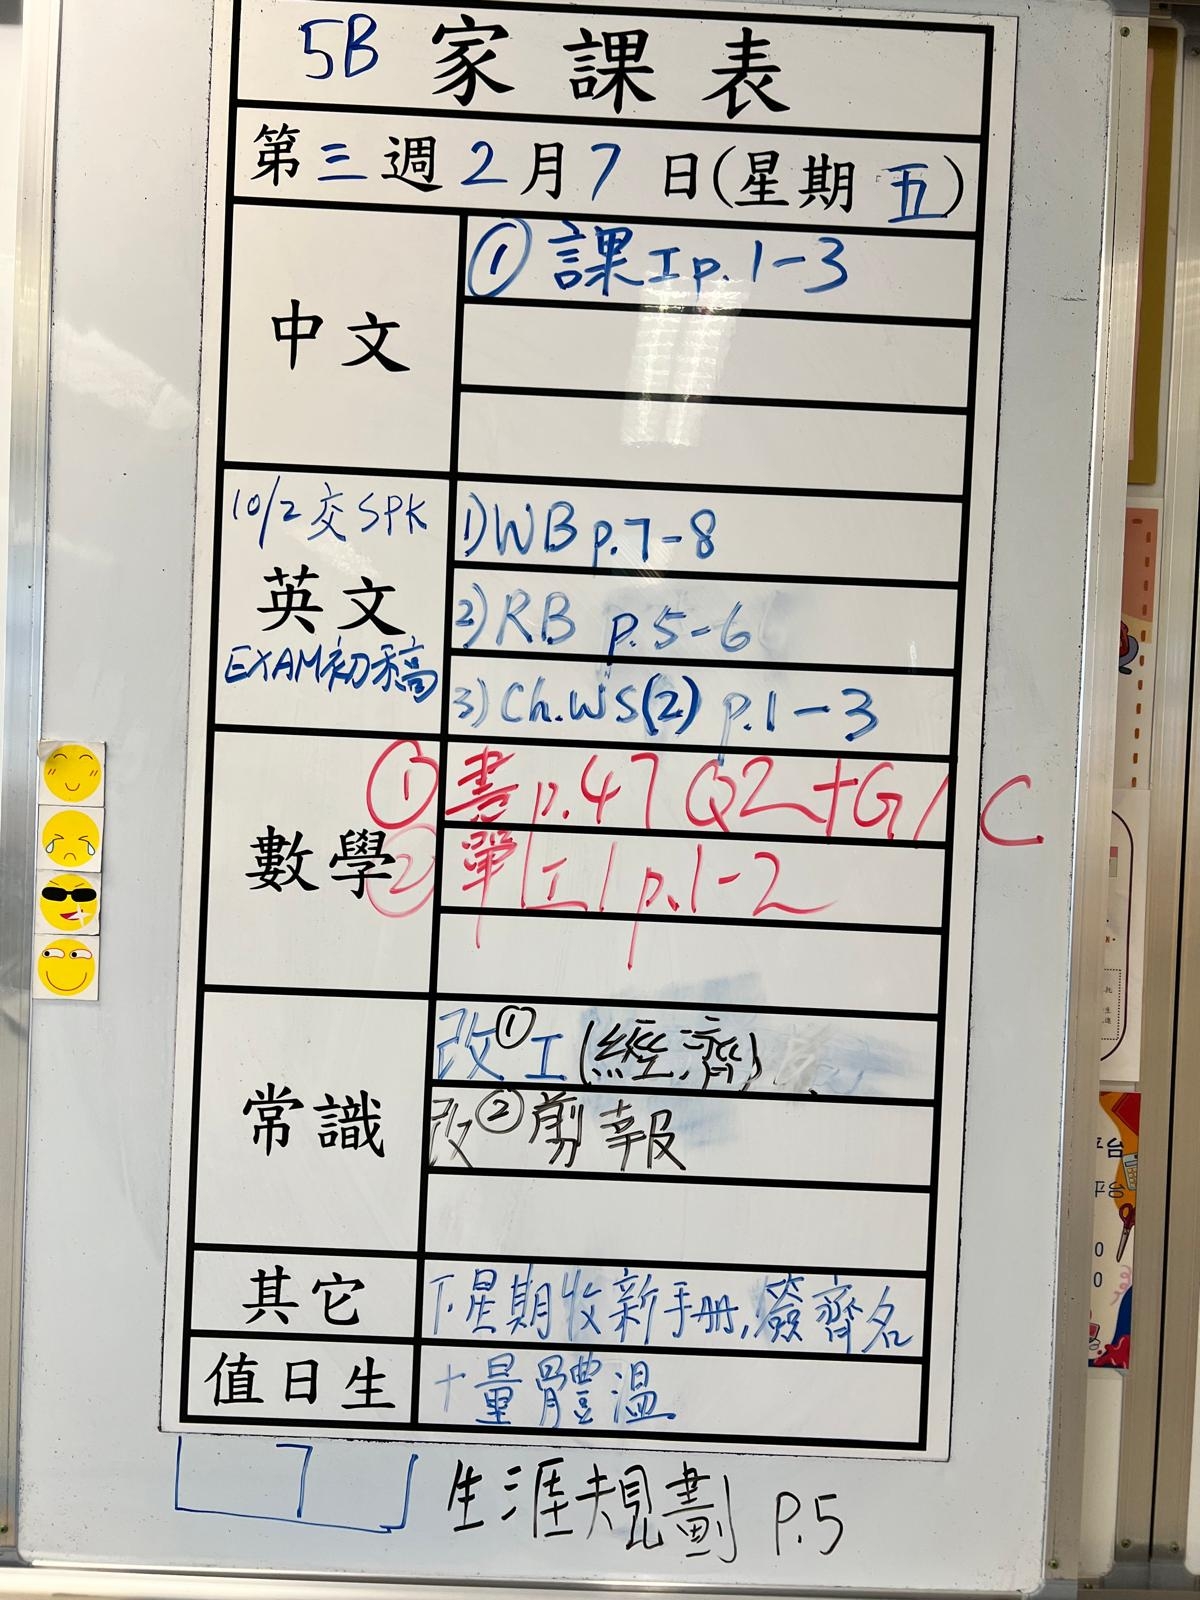 5B 家課表
第三週2月7日(星期五)
中文
① 課工p.1-3
10/2 交 SPK
英文
EXAM初稿
1)WB p.7-8
2)RB p.5-6
3)Ch.WS(2) p.1-3
數學
① 書p.47 Q2+G/C
② 單工1 p.1-2
常識
改①工(經濟)
改②剪報
其它
下星期收新手冊,簽齊名
值日生
+量體溫
7
生涯規劃 P.5
平台
平台
0
0